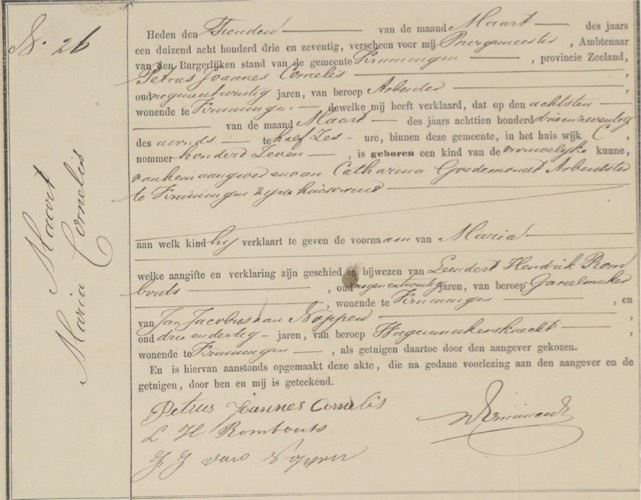 N. 26
Maart
Maria Cornelis
Heden den Tienden van de maand Maart des jaars
een duizend acht honderd drie en zeventig, verscheen voor mij Burgemeester, Ambtenaar
van den Burgerlijken stand van de gemeente Kruiningen, provincie Zeeland,
Petrus Joannes Cornelis
oud negenentwintig jaren, van beroep Arbeider
wonende te Kruiningen dewelke mij heeft verklaard, dat op den achtsten
van de maand Maart des jaars achttien honderd drieenzeventig
des avonds te half zes ure, binnen deze gemeente, in het huis wijk C,
nommer honderd zeven, is geboren een kind van de vrouwelijke kunne,
van hem aangever en van Catharina Goedemondt Arbeidster
te Kruiningen zijne huisvrouw
aan welk kind hij verklaart te geven de voornaam van Maria
welke aangifte en verklaring zijn geschied in bijwezen van Leendert Hendrik Rom
bouts, oud negenentwintig jaren, van beroep
, wonende te Kruiningen, en
van Jan Jacobus van Noppen
oud drie en dertig jaren, van beroep Wagenmakersknecht,
wonende te Kruiningen, als getuigen daartoe door den aangever gekozen.
En is hiervan aanstonds opgemaakt deze akte, die na gedane voorlezing aan den aangever en de
getuigen, door hen en mij is geteekend.
Petrus Joannes Cornelis
L H Rombouts
J J van Noppen